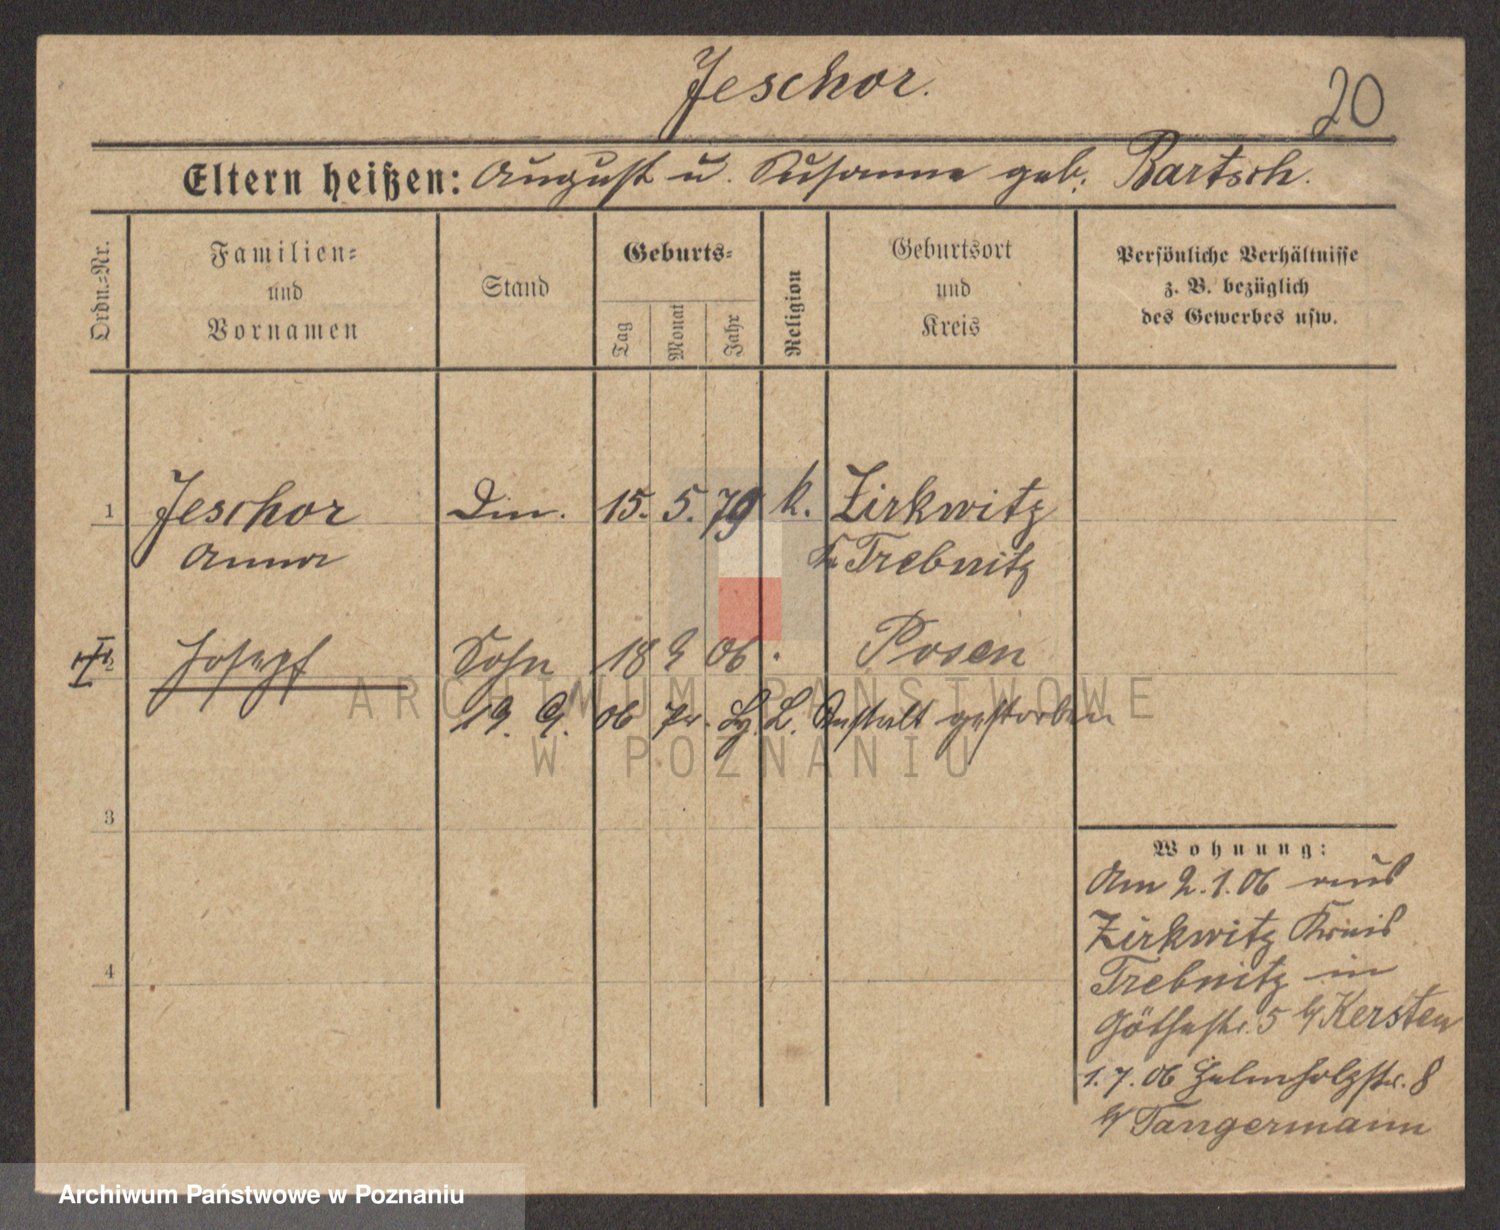 Jeschor.
20
Eltern heißen: August u. Susanna geb. Bartsch.
Ordn.-Nr.
Familien-
und
Vornamen
Stand
Geburts-
Tag
Monat
Jahr
Religion
Geburtsort
und
Kreis
Persönliche Verhältnisse
z. B. bezüglich
des Gewerbes usw.
1 Jeschor Din. 15. 5. 79 k. Zirkwitz
Anna Kr. Trebnitz
2 Josepf Sohn 18 9 06. Posen
19. 9. 06 Pr. L. Anstalt gestorben
ARCHIWUM PAŃSTWOWE
W POZNANIU
3
4
Wohnung:
Am 2.1.06 aus
Zirkwitz Kreis
Trebnitz in
Göthestr. 5 b/ Kersten
1.7.06 Helmholzstr. 8
b/ Tangermann
Archiwum Państwowe w Poznaniu